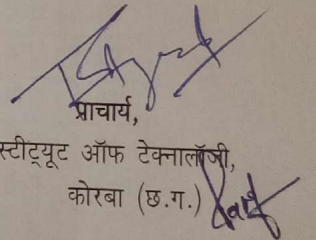 प्राचार्य,
स्टीट्यूट ऑफ टेक्नालॉजी,
कोरबा (छ.ग.)